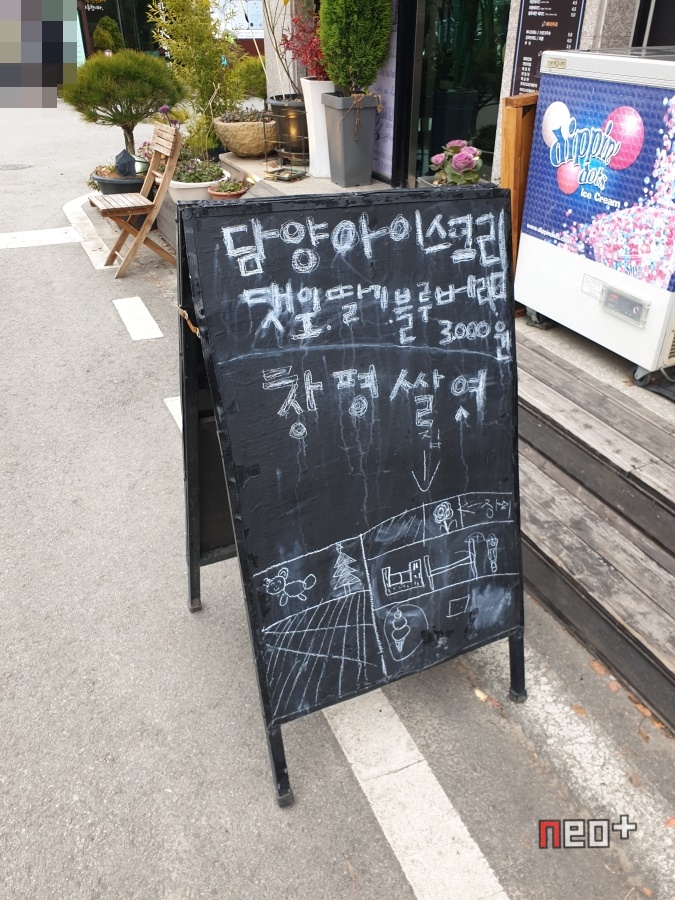 담양아이스크림
댓잎.딸기.블루베리
3.000원
창평쌀엿
집
dippin'
dots
Ice Cream
neo+